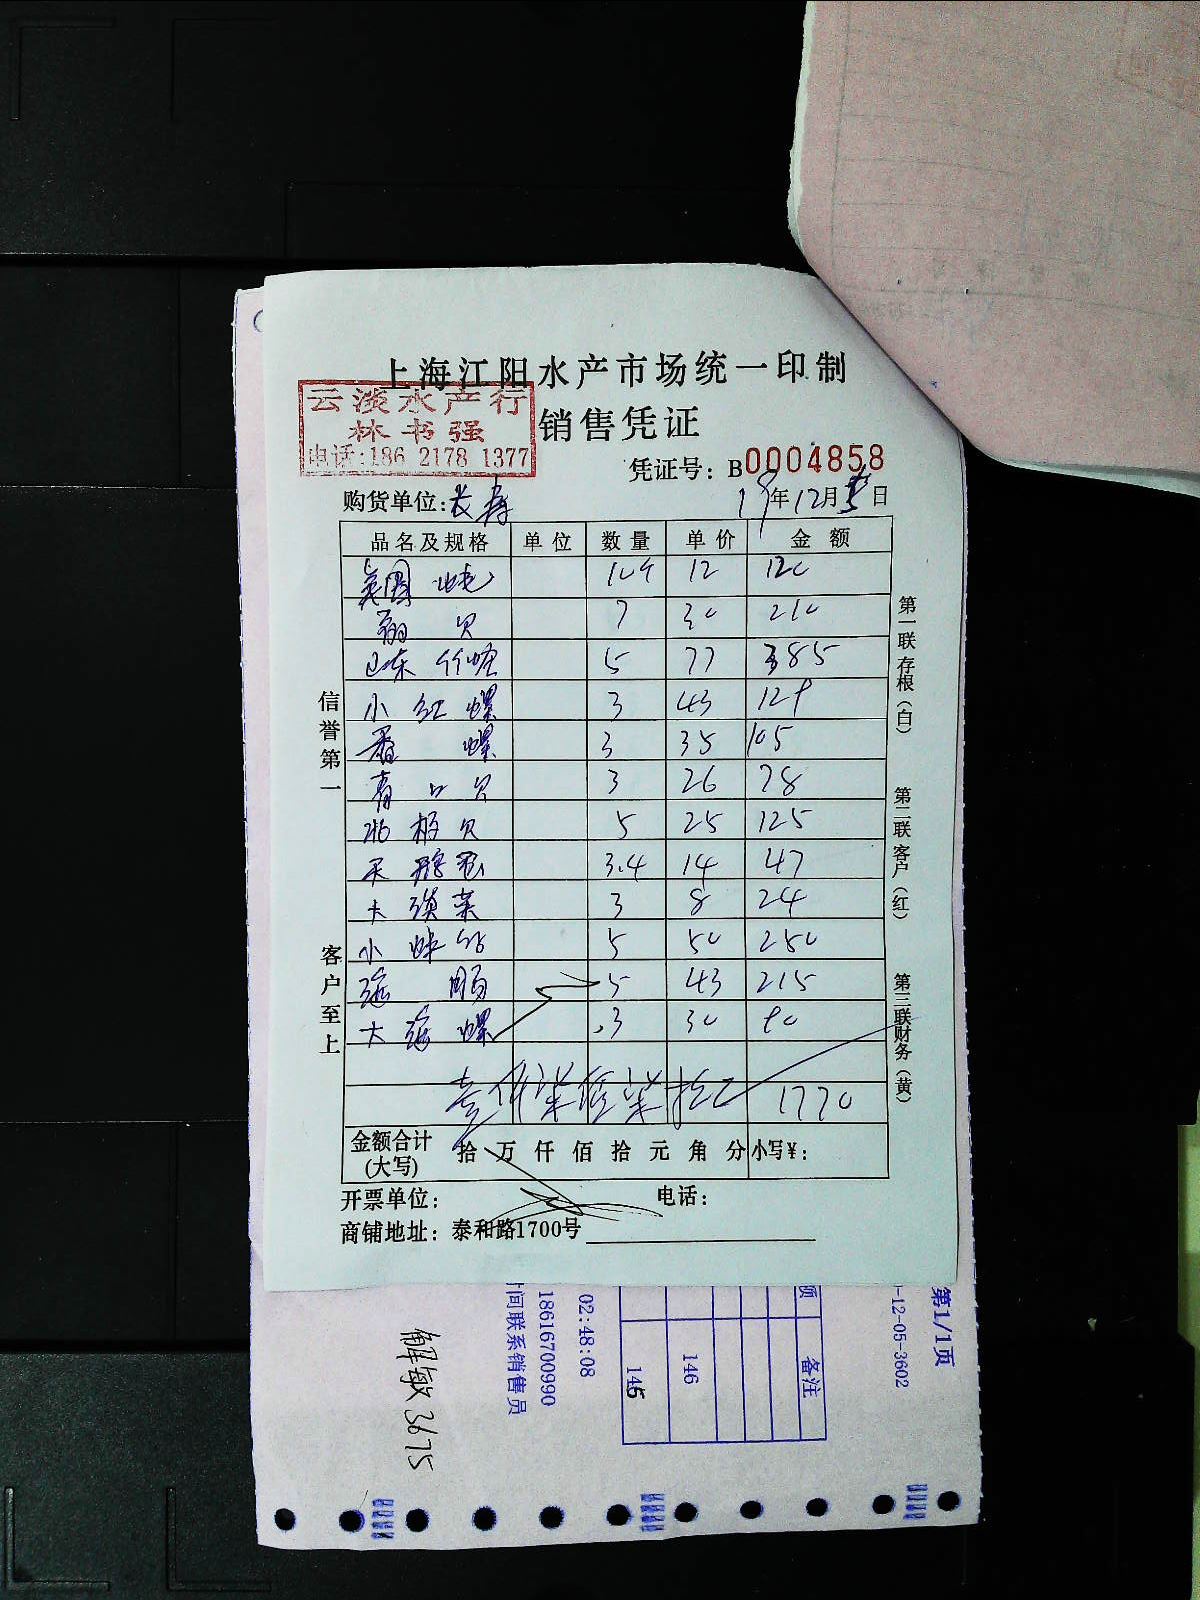 上海江阳水产市场统一印制
云淡水产行
林书强
电话:186 2178 1377
销售凭证
凭证号: B0004858
购货单位:长寿
19年12月5日
品名及规格 单位 数量 单价 金额
12 120
贝 7 30 210
5 77 385
小红螺 3 43 129
香螺 3 35 105
青口贝 3 26 78
北极贝 5 25 125
3.4 14 47
3 8 24
小 5 50 250
5 43 215
大海螺 3 30 90
壹仟柒佰柒拾元 1770
金额合计
(大写)
拾万仟佰拾元角分 小写¥:
开票单位: 电话:
商铺地址: 泰和路1700号
信誉第一
客户至上
第一联存根(白)
第二联客户(红)
第三联财务(黄)
第1/1页
-12-05-3602
备注
146
145
02:48:08
18616700990
间联系销售员
解敏3675